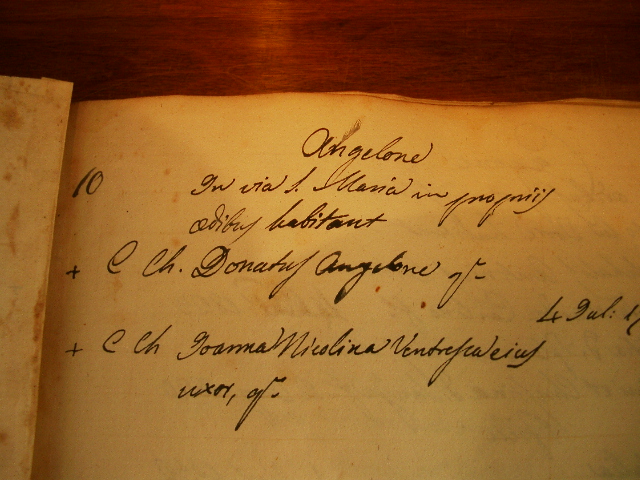 Angelone
10 In via S. Maria in propriis
ædibus habitant
+ C Ch. Donatus Angelone q.m
4 Jul: 17
+ C Ch Joanna Nicolina Ventresca eius
uxor, q.m